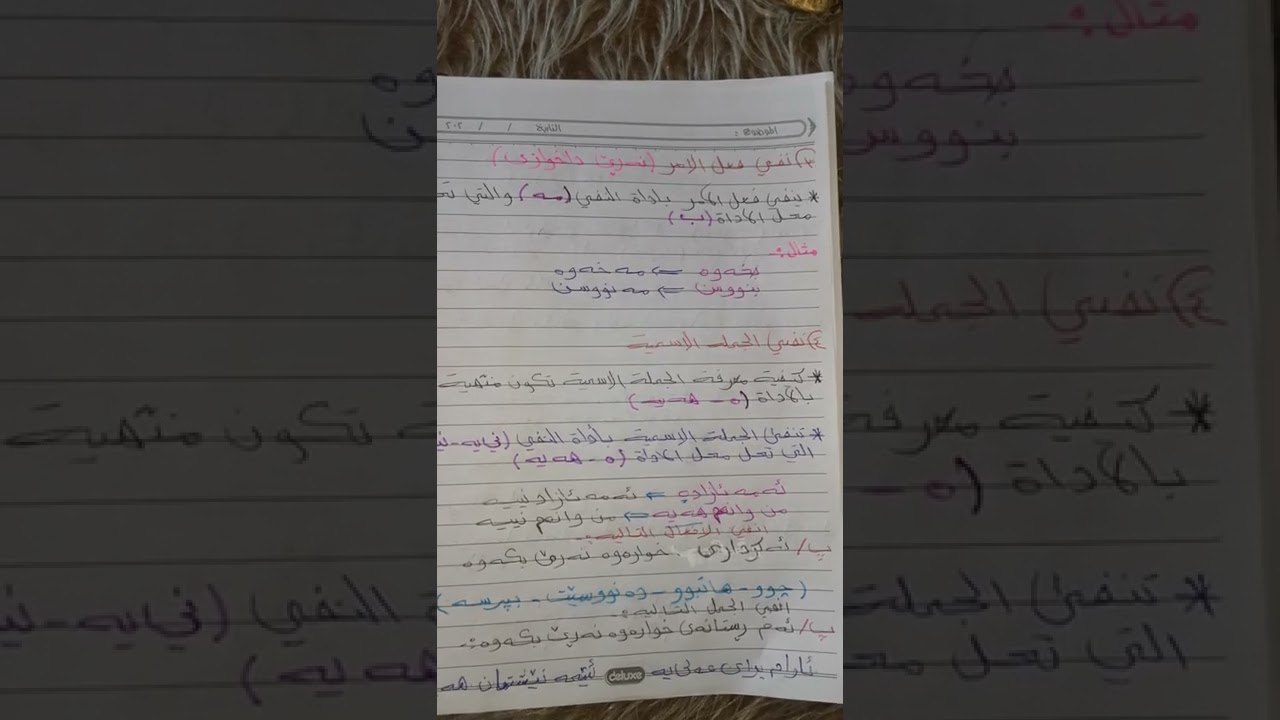 الموضوع : التاريخ / / ٢٠٢
٣) نفي فعل الامر (نەرێ داخوازى)
* ينفى فعل الامر باداة النفي (مە) والتي تح
محل الاداة (ب)
مثال:-
بخەوە ⇐ مە خەوە
بنووس ⇐ مە نووس
٤) نفي الجملة الاسمية
* كيفية معرفة الجملة الاسمية تكون منتهية
بالاداة (ە - هەیە)
* تنفى الجملة الاسمية بأداة النفي (نی یە - نی
التي تحل محل الاداة (ە - هەیە)
ئەمە ئازادە ⇐ ئەمە ئازاد نییە
من وانەم هەیە ⇐ من وانەم نییە
انفي الافعال التالية:-
پ/ ئەم کرداری خوارەوە نەرێ بکەوە
(چوو - هاتبوو - دەنووسێت - بپرسە)
انفي الجمل التالية:-
پ/ ئەم رستانەی خوارەوە نەرێ بکەوە:-
ئارام برای عەلی یە ئێمە نیشتمان هە
deluxe